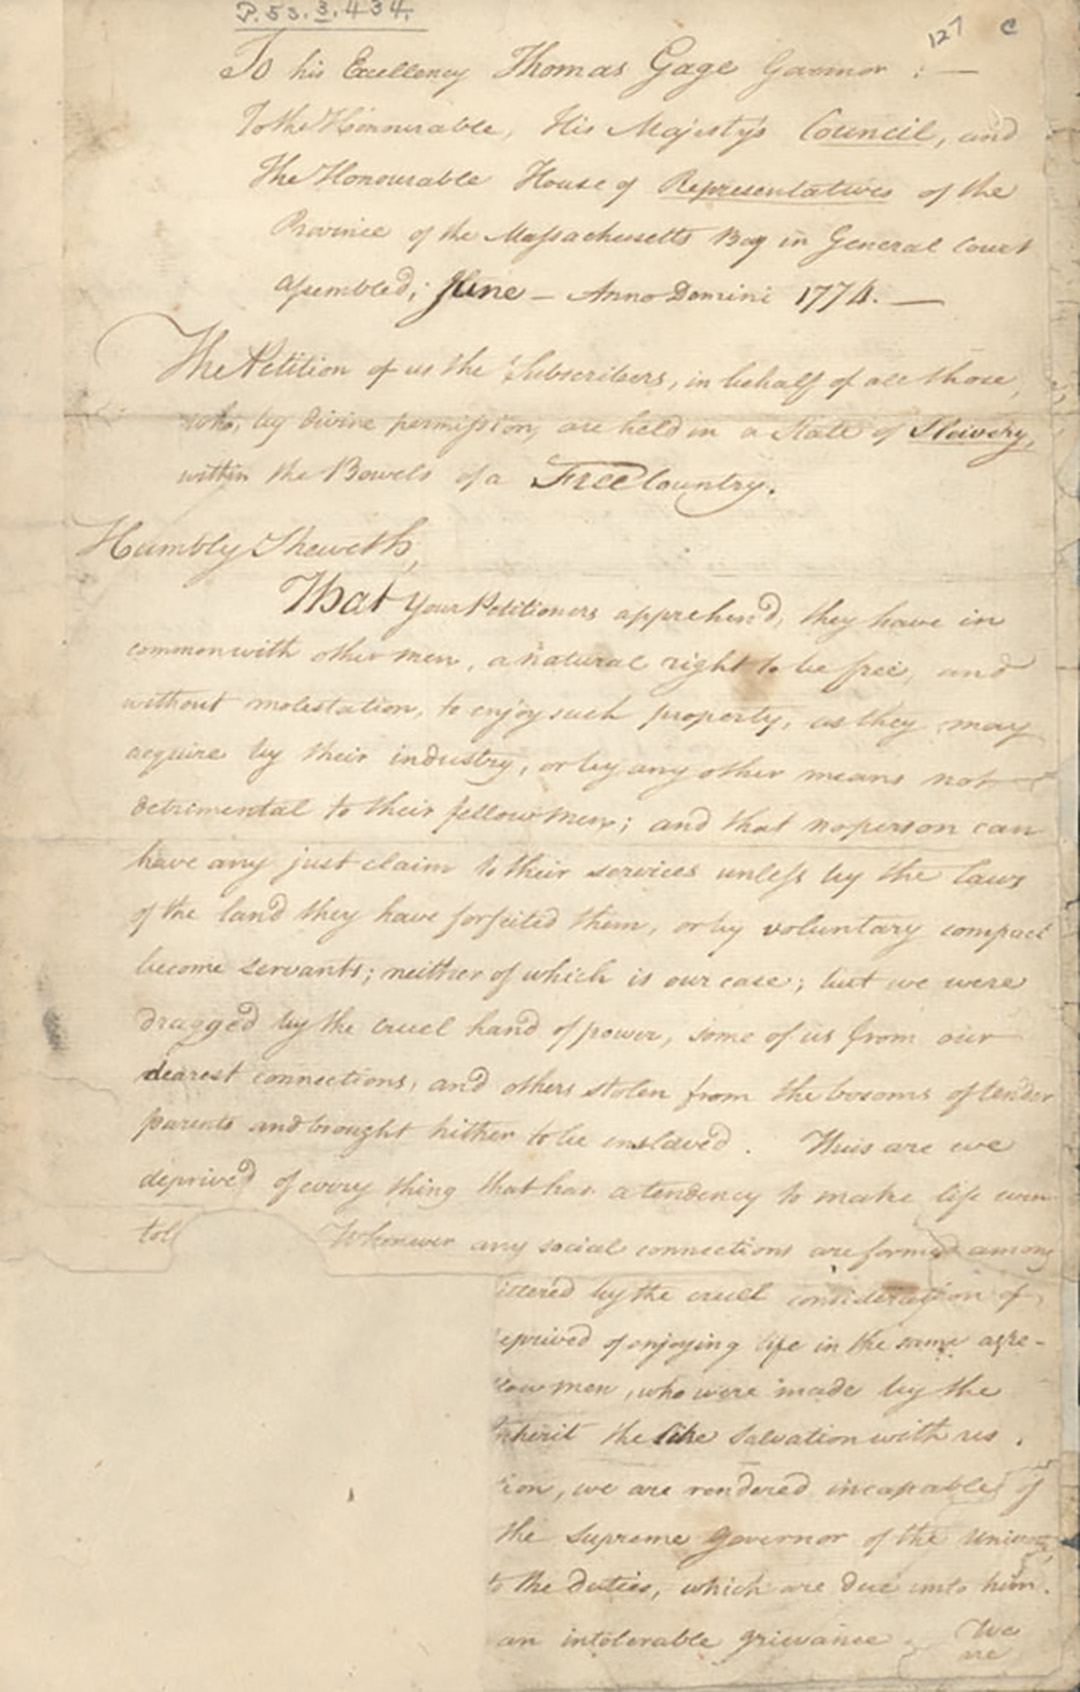 P.53.3.434.
127 C
To his Excellency Thomas Gage Govenor : —
To the Honnourable, His Majesty's Council, and
The Honourable House of Representatives of the
Province of the Massachusetts Bay in General Court
assembled; June — Anno Domini 1774. —
The Petition of us the Subscribers, in behalf of all those,
who, by divine permission, are held in a State of Slavery,
within the Bowels of a Free Country.
Humbly Sheweth,
That Your Petitioners apprehend, they have in
common with other men, a natural right to be free, and
without molestation, to enjoy such property, as they may
acquire by their industry, or by any other means not
detrimental to their fellow men; and that no person can
have any just claim to their services unless by the laws
of the land they have forfeited them, or by voluntary compact
become servants; neither of which is our case; but we were
dragged by the cruel hand of power, some of us from our
dearest connections, and others stolen from the bosoms of tender
parents and brought hither to be enslaved. Thus are we
deprived of every thing that has a tendency to make life even
tol Whenever any social connections are formed among
ttered by the cruel consideration of
eprived of enjoying life in the same agre-
low men, who were made by the
nherit the like Salvation with us.
ion, we are rendered incapable of
the Supreme Governor of the Universe,
to the duties, which are due unto him.
an intolerable grievance We
are